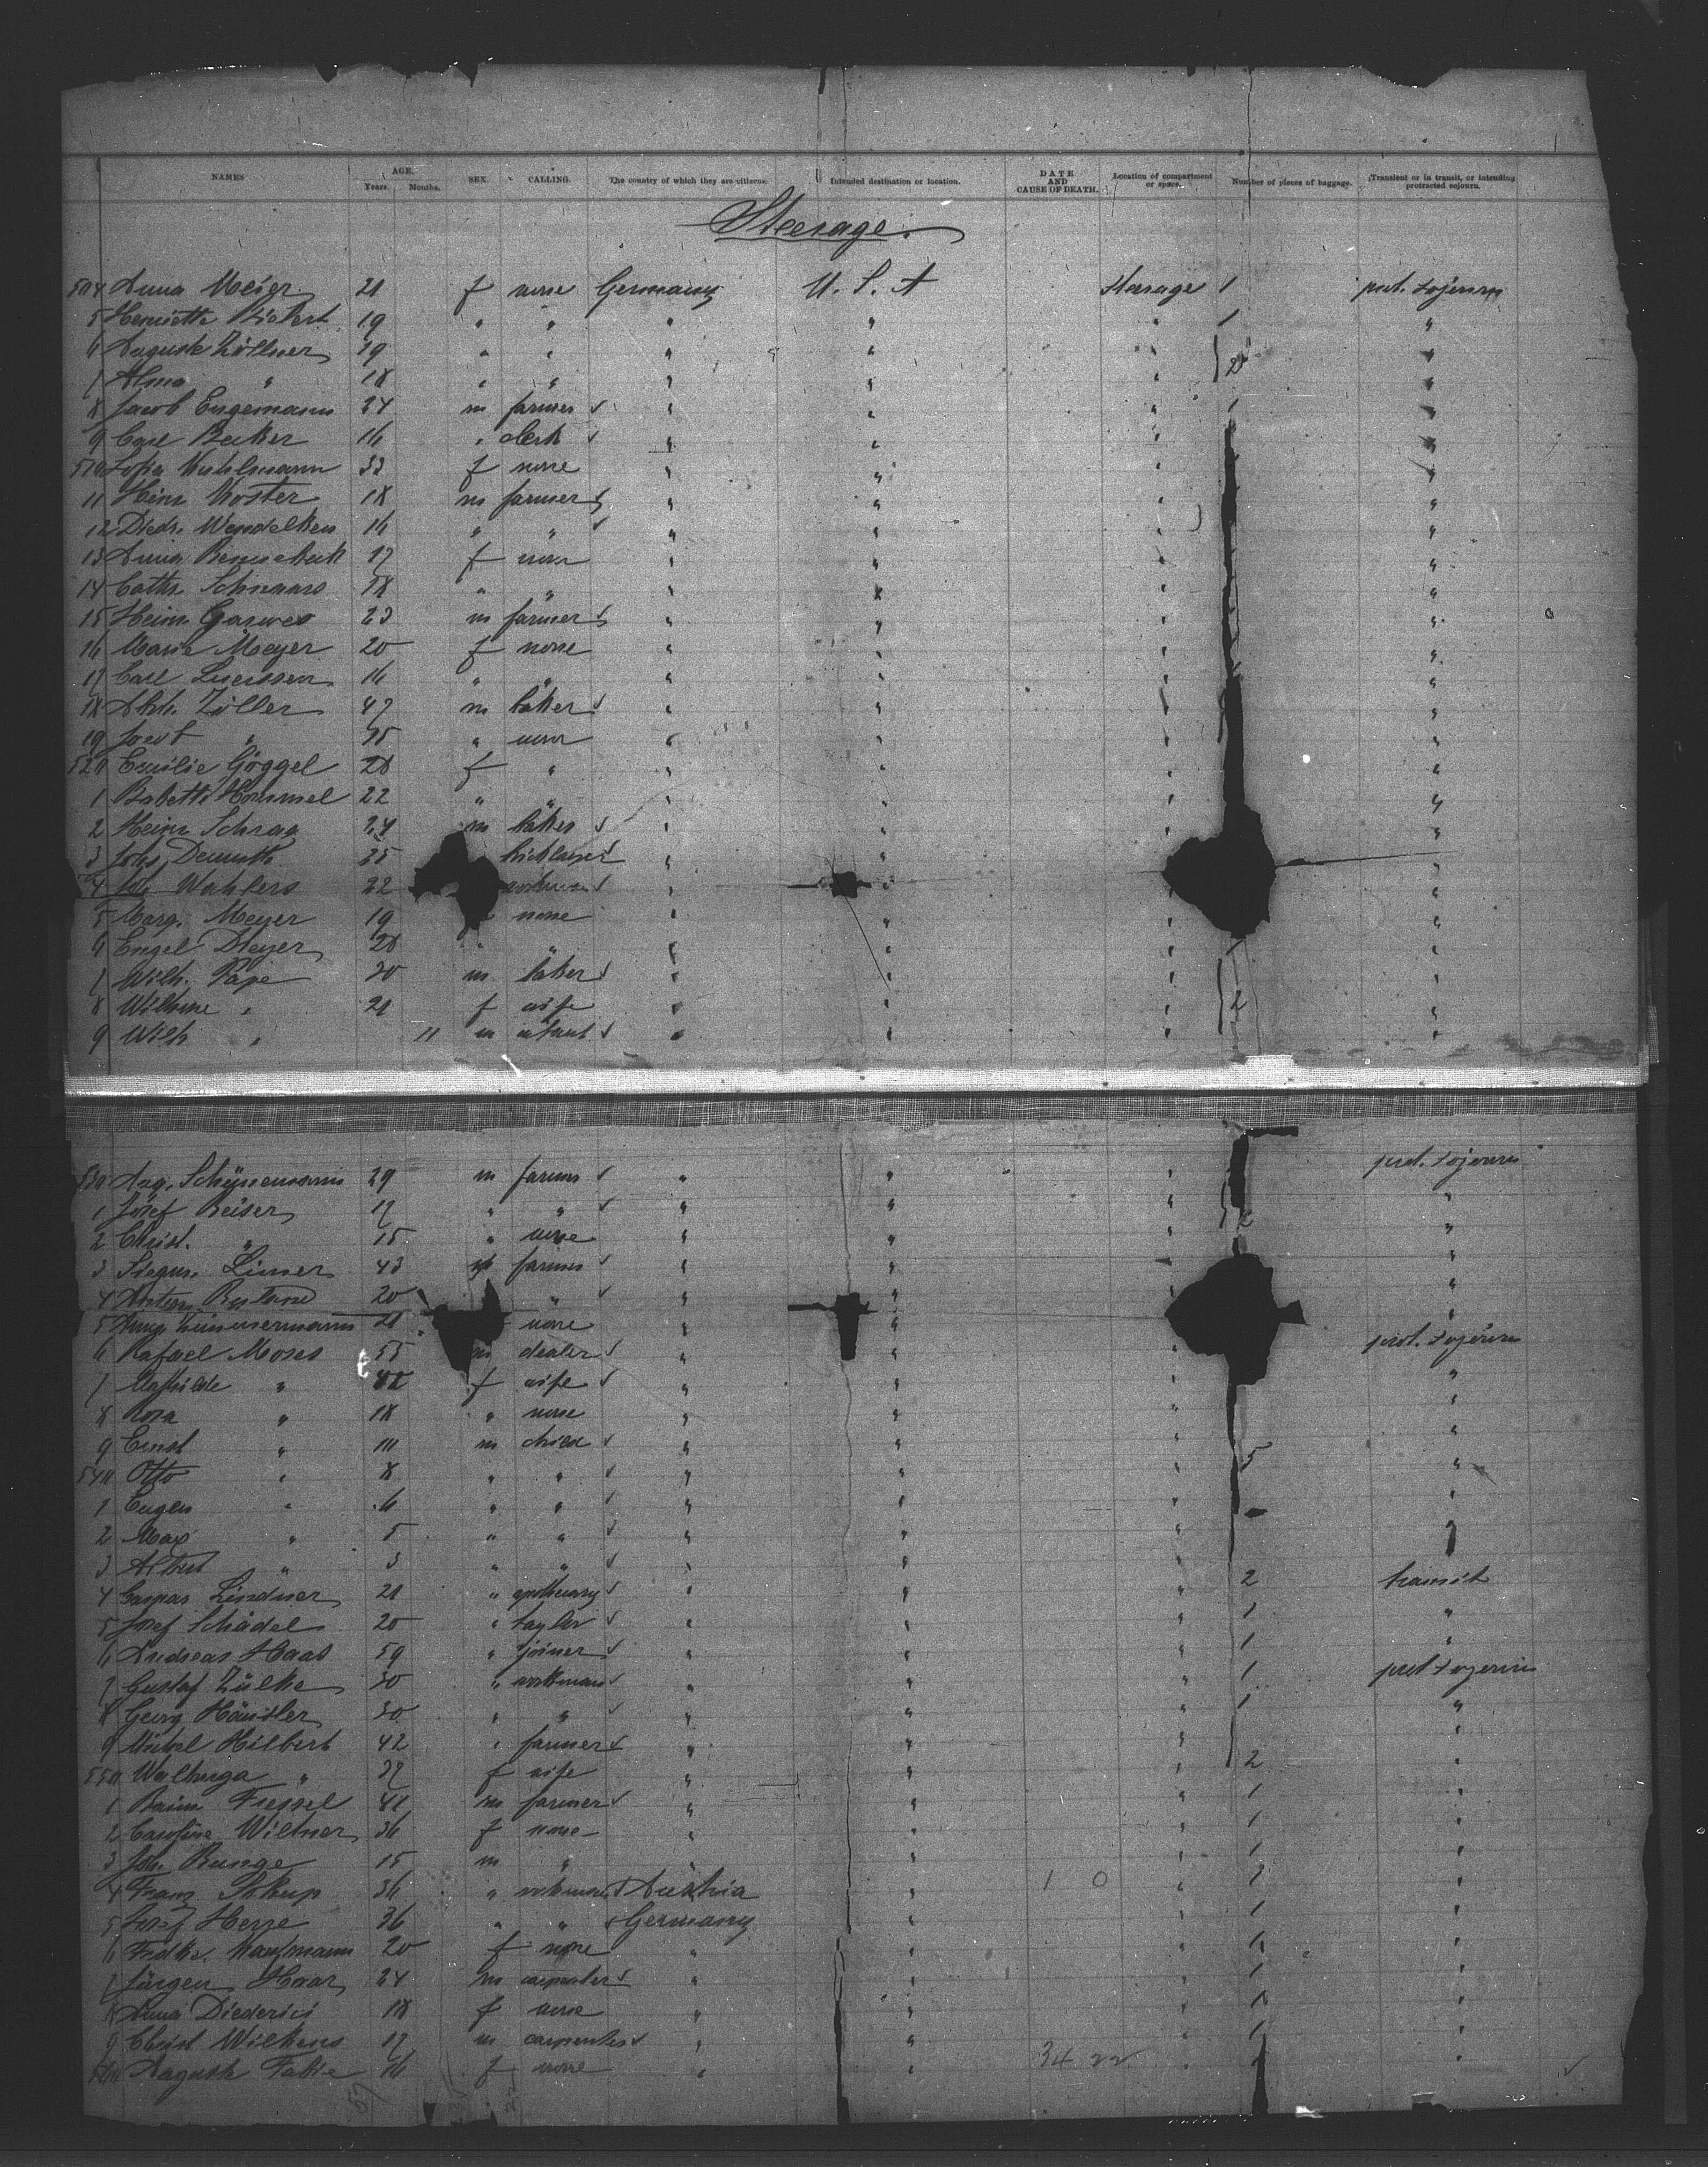 NAMES AGE. Years. Months. SEX. CALLING. The country of which they are citizens. Intended destination or location. DATE AND CAUSE OF DEATH. Location of compartment or space. Number of pieces of baggage. Transient or in transit, or intending protracted sojourn.
Steerage.
504 Anna Meier 21 f none Germany U. S. A Steerage 1 prot. sojourn
5 Henriette 19 " " " " " 1 "
6 Auguste Zöllner 19 " " " " " 2 "
7 Alma " 18 " " " " " "
8 Jacob Engemann 24 m farmer " " " 1 "
9 Carl Becker 16 " clerk " " " "
510 Sofia Kuhlmann 33 f none " " " "
11 Heinr Koster 18 m farmer " " " "
12 Diedr. Wendelken 16 " " " " " "
13 Anna 17 f none " " " "
14 Cathr Schnaars 18 " " " " " "
15 Heinr. 23 m farmer " " " "
16 Marie Meyer 20 f none " " " "
17 Carl Luerssen 16 " " " " " "
18 Zöller 47 m baker " " " "
19 " 15 " none " " " "
520 Emilie Göggel 28 f " " " " "
1 Babette Hommel 22 " " " " " "
2 Heinr Schrag 24 m baker " " " "
3 Johs. Demuth 25 " " " "
4 Joh Wahlers 22 workman " " " "
5 Marg. Meyer 19 none " " " "
6 Engel Meyer 28 " " " " " "
7 Wilh. Pape 30 m baker " " " "
8 Wilhme " 21 f wife " " " 2 "
9 Wilh " 11 m infant " " " "
530 Aug. Schünemann 29 m farmer " " " prot. sojourn
1 Josef Reiser 17 " " " " " "
2 Christ. " 15 " none " " " 2 "
3 43 m farmer " " " "
4 Anton 20 " " " " "
5 Zimmermann 21 none " " " "
6 Rafael Moses 55 m dealer " " " prot. sojourn
7 Mathilde " f wife " " " "
8 Rosa " 18 " none " " " "
9 Ernst " 10 m child " " " 5 "
540 Otto " 8 " " " " " "
1 Eugen " 6 " " " " " "
2 Max " 5 " " " " " "
3 Albert " 3 " " " " "
4 Caspar Lindner 21 " apothecary " " " 2 transit
5 Josef Schädel 20 " taylor " " " 1 "
6 Andreas Haas 59 " joiner " " " 1 "
7 Gustaf Zülke 30 " workman " " " 1 prot sojourn
8 Georg Häusler 30 " " " " " 1 "
9 Michael Hilbert 42 " farmer " " " "
550 Walburga " 37 f wife " " " 2 "
1 41 m farmer " " " 1 "
2 Caroline Wiltner 36 f none " " " 1 "
3 Joh. Runge 15 m " " " " 1 "
4 Franz 36 " workman Austria " 1 0 " 1 "
5 Josef Herre 36 " " Germany " " 1 "
6 Kaufmann 20 f none " " " 1 "
7 Jürgen Haar 24 m carpenter " " " 1 "
8 Anna Diederici 18 f none " " " 1 "
9 Christ Wilkens 17 m carpenter " " " 1 "
560 Auguste 16 f none " " 34 22 " 1 "